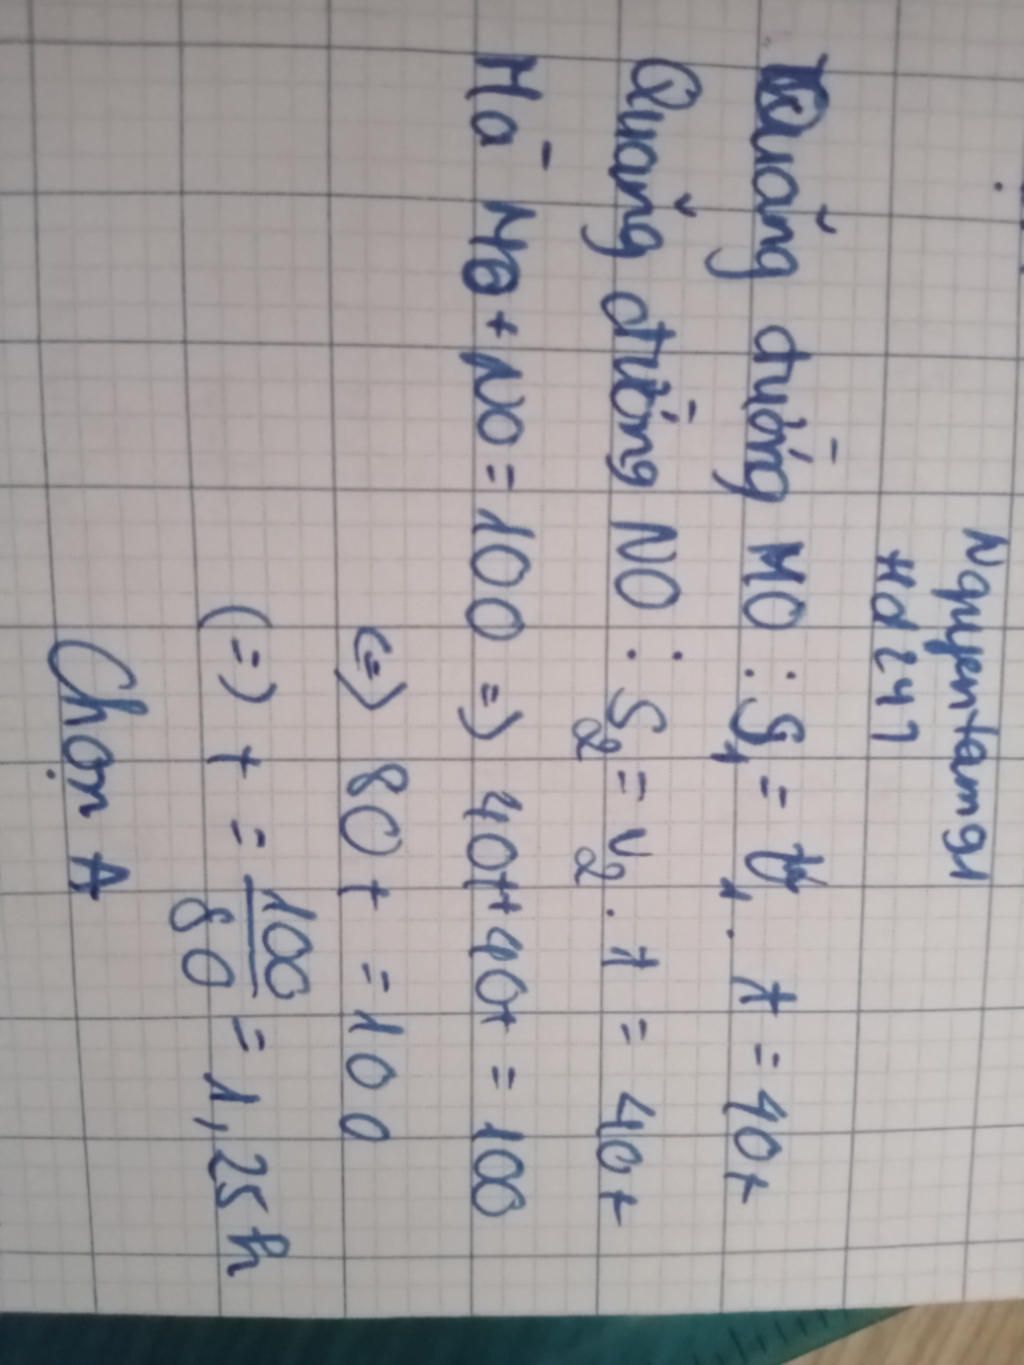 Nguyentamgl
Hd247
Quãng đường MO : S₁ = v₁ . t = 40t
Quãng đường NO : S₂ = v₂ . t = 40t
Mà MO + NO = 100 => 40t + 40t = 100
(=) 80t = 100
(=) t = 100/80 = 1,25h
Chọn A